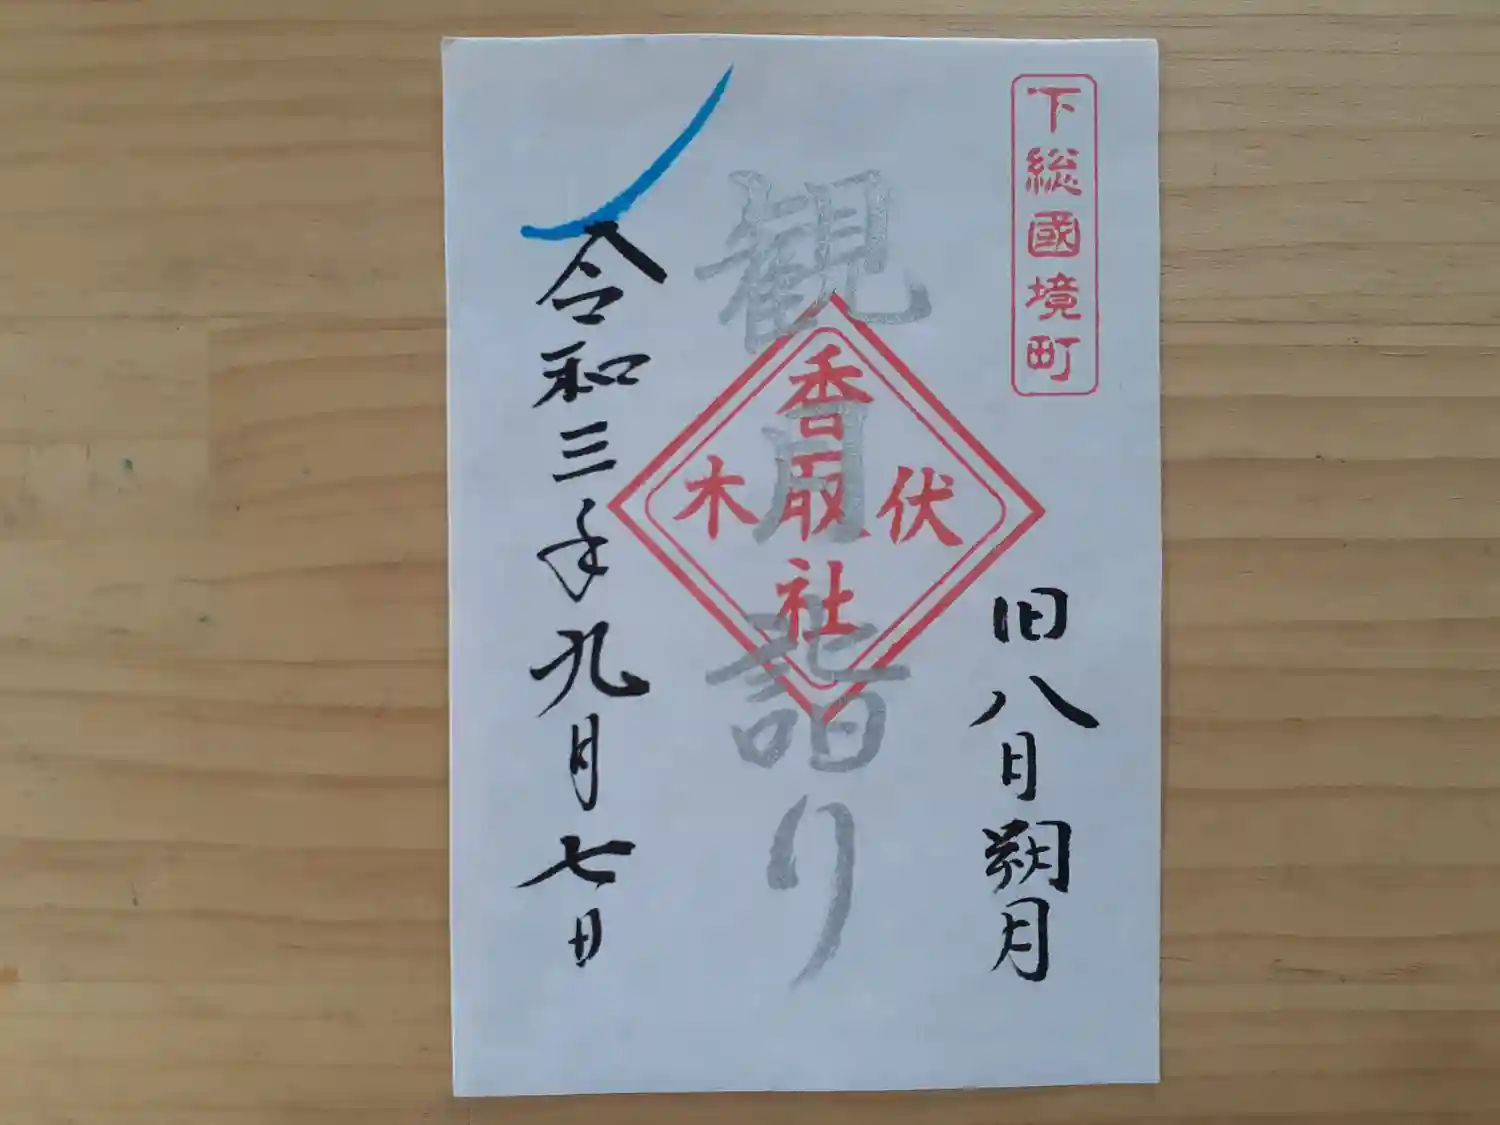 下総國境町
旧八月朔月
観月詣り
香取社
伏木
令和三年九月七日